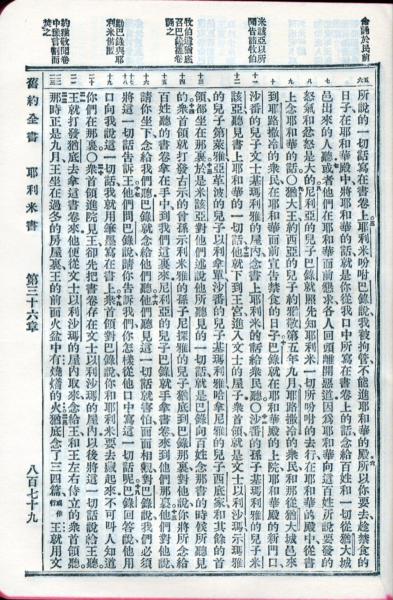 命誦於民前
米該亞以所聞告諸牧伯
牧伯遣猶底召巴錄攜卷誦之
勸巴錄與耶利米俱匿
約雅敬聞卷中言割而焚之
所說的一切話寫在書卷上耶利米吩咐巴錄說我被拘管不能進耶和華的殿所以你要去趁禁食的
日子在耶和華殿中將耶和華的話就是你從我口中所寫在書卷上的話念給百姓和一切從猶大城
邑出來的人聽或者他們在耶和華面前懇求各人回頭離開惡道因爲耶和華向這百姓所說要發的
怒氣和忿怒是大的尼利亞的兒子巴錄就照先知耶利米一切所吩咐的去行在耶和華殿中從書
上念耶和華的話〇猶大王約西亞的兒子約雅敬第五年九月耶路撒冷的衆民和那從猶大城邑來
到耶路撒冷的衆民在耶和華面前宣告禁食的日子巴錄就在耶和華殿的上院耶和華殿的新門口
沙番的兒子文士基瑪利雅的屋內念書上耶利米的話給衆民聽〇沙番的孫子基瑪利雅的兒子米
該亞聽見書上耶和華的一切話他就下到王宮進入文士的屋子衆首領就是文士以利沙瑪示瑪雅
的兒子第萊雅亞革波的兒子以利拿單沙番的兒子基瑪利雅哈拿尼雅的兒子西底家和其餘的首
領都坐在那裏於是米該亞對他們述說他所聽見的一切話就是巴錄向百姓念那書的時候所聽見
的衆首領就打發古示的曾孫示利米雅的孫子尼探雅的兒子猶底到巴錄那裏對他說你將所念給
百姓聽的書卷拿在手中到我們這裏來尼利亞的兒子巴錄就手拿書卷來到他們那裏他們對他說
請你坐下念給我們聽巴錄就念給他們聽他們聽見這一切話就害怕面面相觀對巴錄說我們必須
將這一切話告訴王他們問巴錄說請你告訴我們你怎樣從他口中寫這一切話呢巴錄回答說他用
口向我說這一切話我就用筆墨寫在書上衆首領對巴錄說你和耶利米要去藏起來不可叫人知道
你們在那裏〇衆首領進院見王卻先把書卷存在文士以利沙瑪的屋內以後將這一切話說給王聽
王就打發猶底去拿這書卷來他便從文士以利沙瑪的屋內取來念給王和王左右侍立的衆首領聽
那時正是九月王坐在過冬的房屋裏王的前面火盆中有燒着的火猶底念了三四篇或作行王就用文
舊約全書 耶利米書 第三十六章 八百七十九